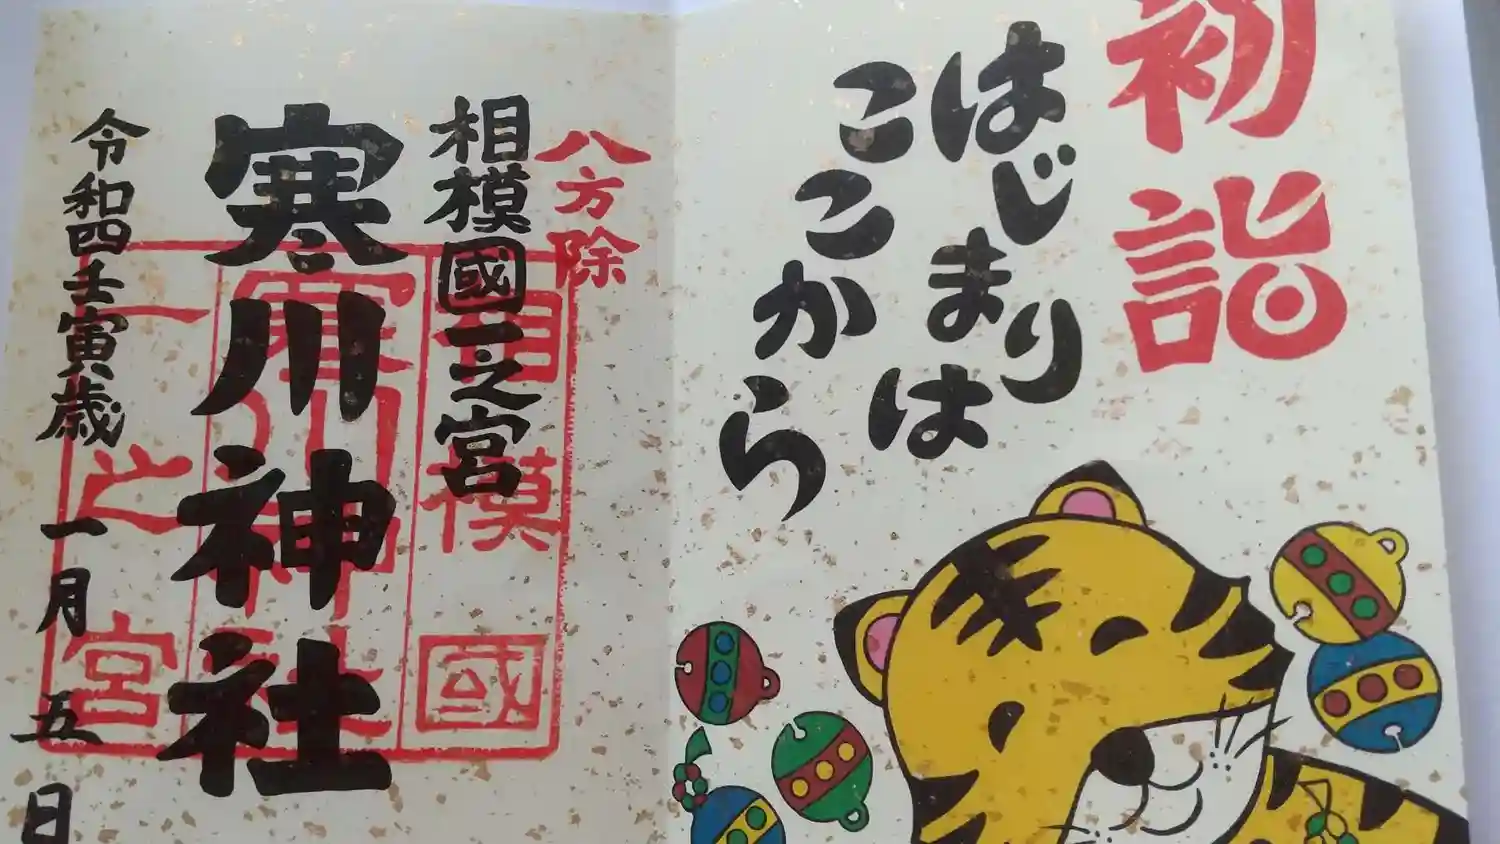 初詣
はじまりは
ここから
八方除
相模國一之宮
寒川神社
令和四壬寅歳一月五日
相模國
寒川神社
一之宮